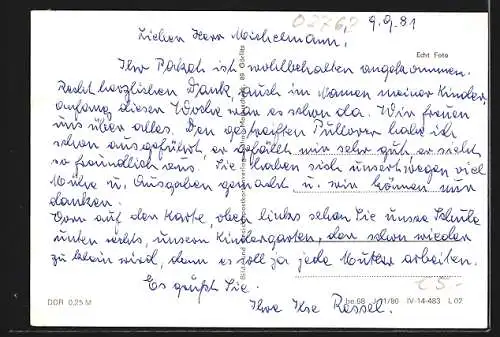 02768
9.9.81
Lieben Herr Michelmann,
Echt Foto
Ihr Paket ist wohlbehalten angekommen.
Recht herzlichen Dank, auch im Namen meiner Kinder,
anfang dieser Woche war es schon da. Wir freuen
uns über alles. Den gestreiften Pullover habe ich
schon ausgeführt, er gefällt mir sehr gut, er sieht
so freundlich aus. Sie haben sich unsertwegen viel
Mühe u. Ausgaben gemacht u. wir können nur
danken.
Vorn auf der Karte, oben links sehen Sie unsre Schule
unten rechts, unsern Kindergarten, der schon wieder
zu klein wird, denn es soll ja jede Mutter arbeiten.
Es grüßt Sie
Ihre Ilse Ressel.
DDR 0,25 M
J 11/80 IV-14-483 L 02